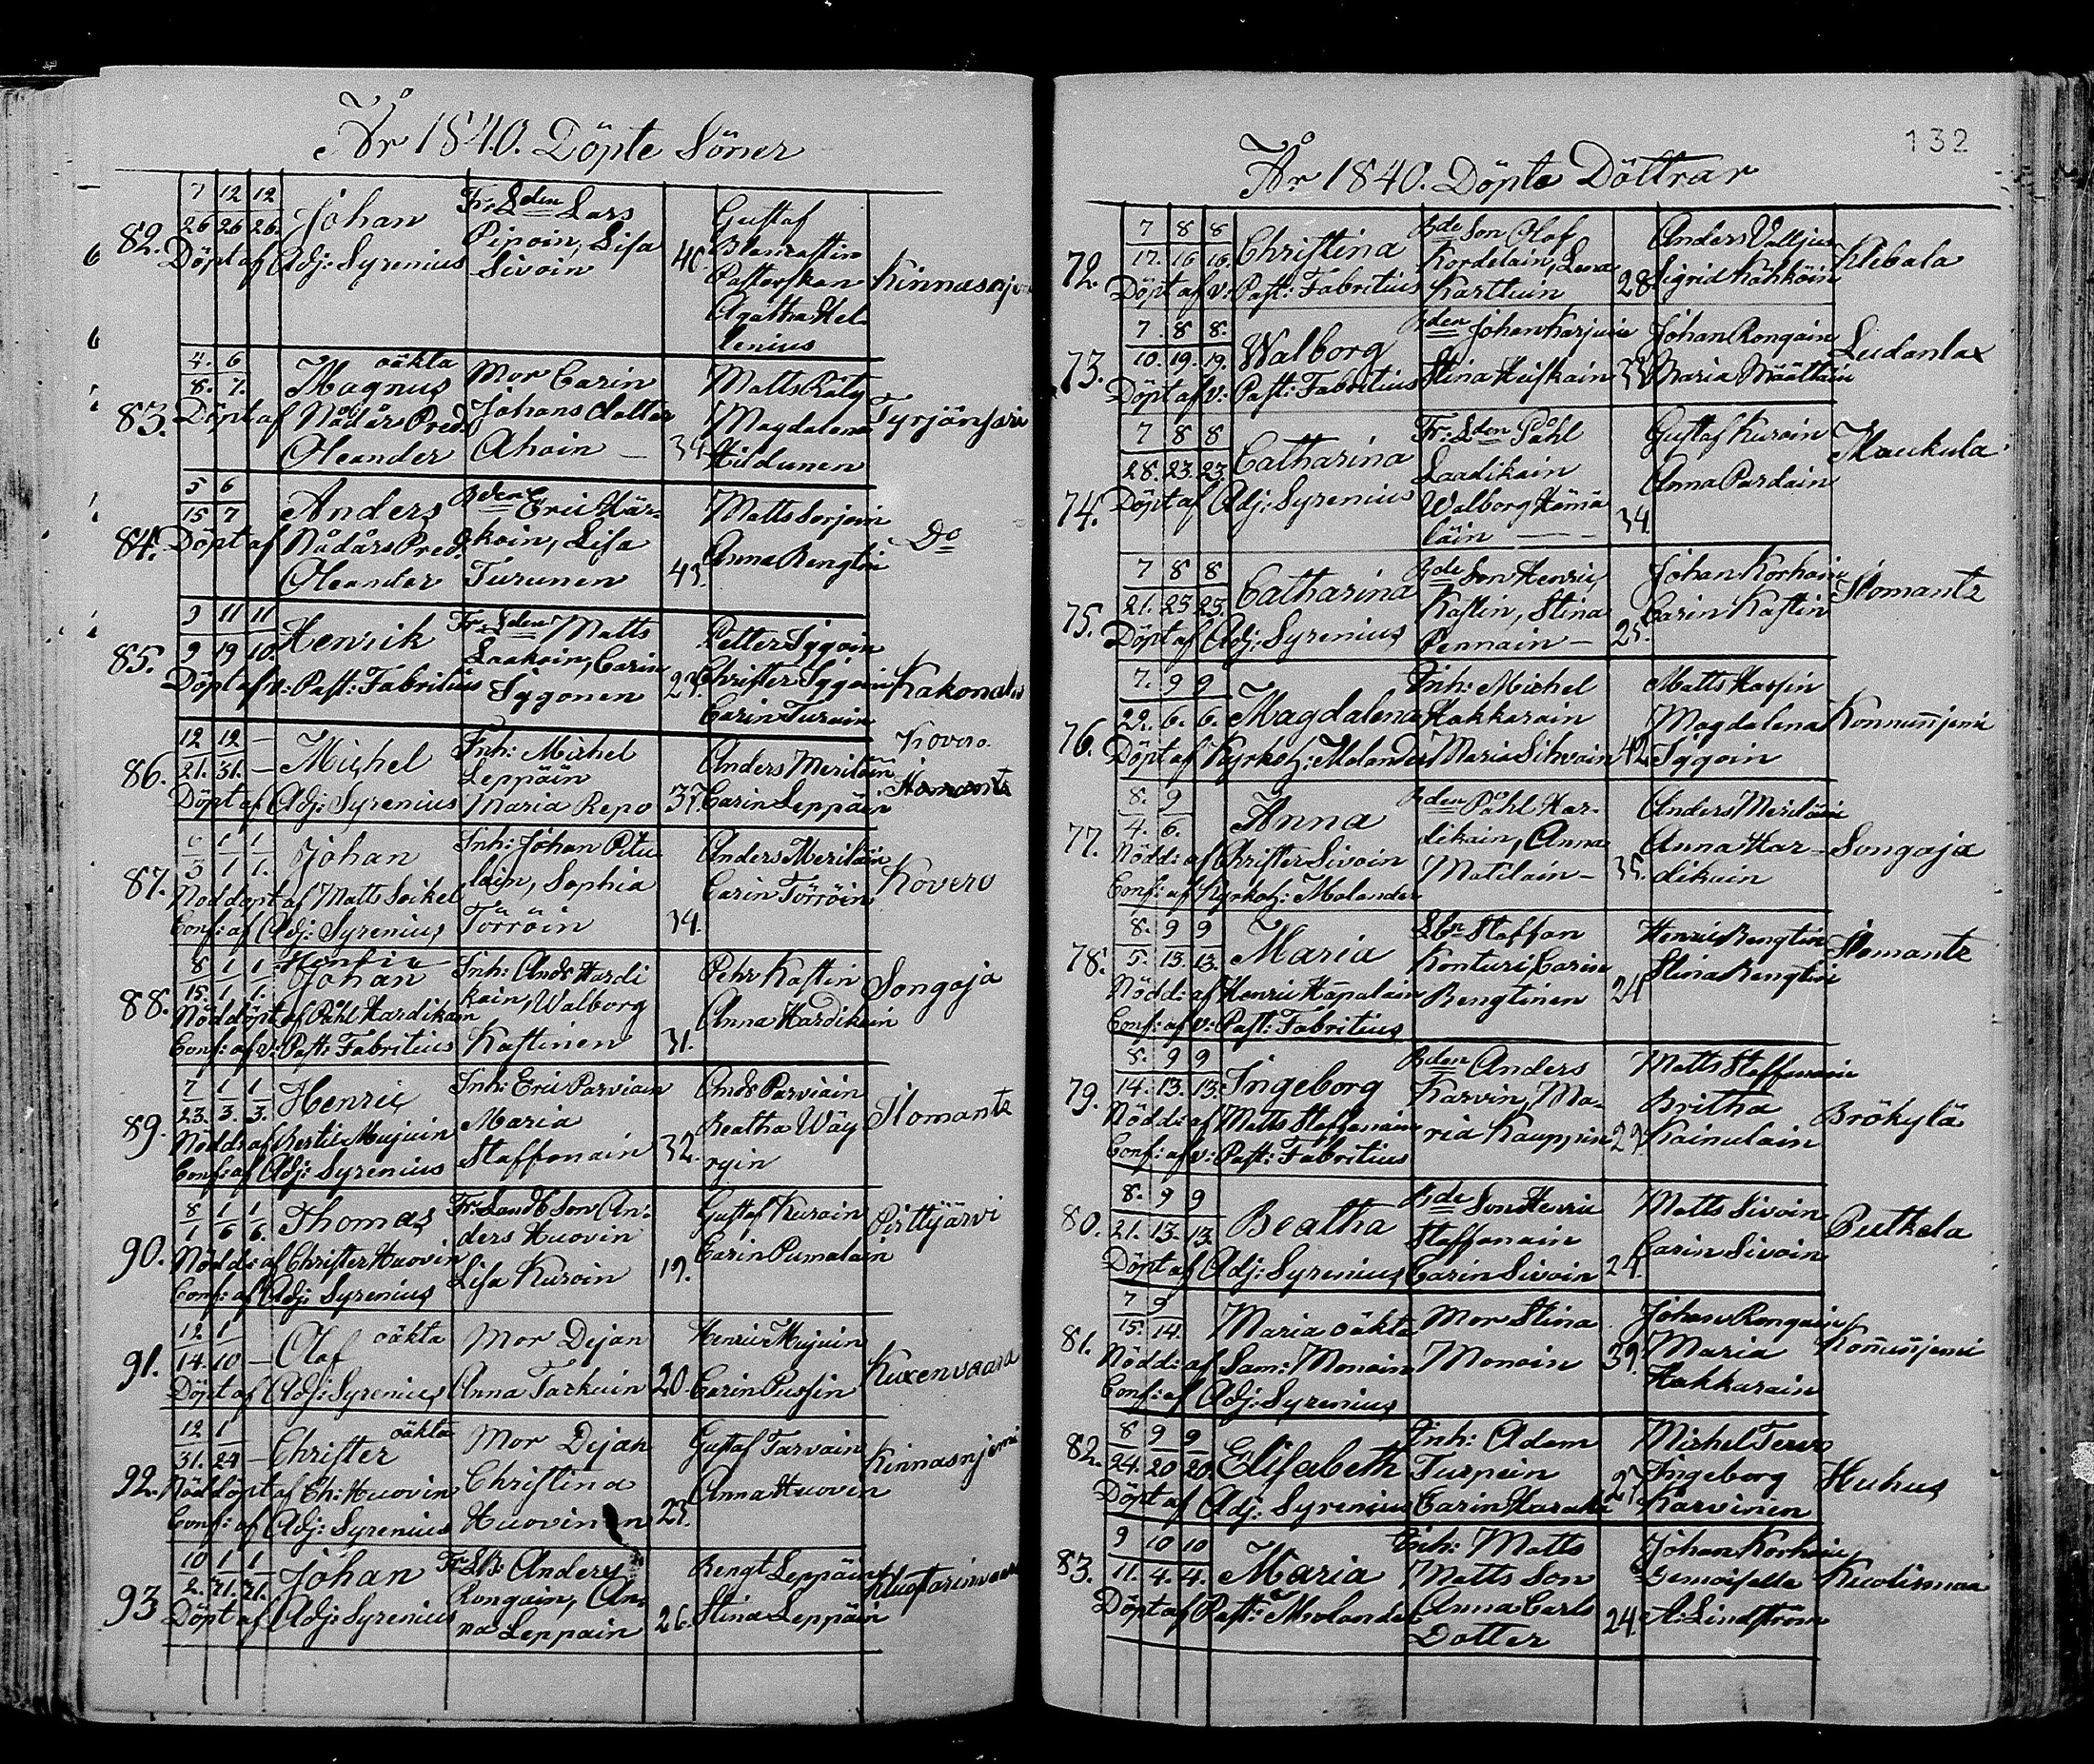 År 1840. Döpte Söner
7 12 12 Johan Fr: Lden Lars Gustaf
82. 26 26 26. Pipoin, Lisa 40. Blancastin
Döpt af Adj: Syrenius Sivoin Pastorskan Kinnasnj
Agatha Hel-
lenius
4. 6 oäkta Mor Carin Matts Räty
8. 7. Magnus Johans dotter Magdalena Tyrjänsari
83. Döpt af Nådårs Pred. Ahoin — 34 Hildunen
Oleander
5 6 Anders Bden Eric Här- Matts Sorjoin
15 7 koin, Lisa Anna Bengtin Do
84. Döpt af Nådårs Pred. Turunen 43.
Oleander
9 11 11 Henrik Fr: Lden Matts Petter Iggoin
85. 9 19 19. Laakoin, Carin 23. Christer Iggoin Kakonales
Döpt af v: Past: Fabritius Iggonen Carin Turoin
12 12 — Michel Inh: Michel Anders Meriläin Kovero.
86. 21. 31. — Leppäin Carin Leppäin Ilomants
Döpt af Adj: Syrenius Maria Repo 37.
6 1 1 Johan Inh: Johan Pitu Anders Meriläin
87. 3 1 1. lain, Sophia Carin Törröin Kovero
Nöddöpt af Matts Soikel Törröin 34.
Conf: af Adj: Syrenius
8 1 1 Henric Johan Inh: Ands Hardi Pehr Kastin Songaja
88. 15. 1 1. kain, Walborg Anna Hardikain
Nöddöpt af Påhl Hardikain Kastinen 31.
Conf: af v: Past: Fabritius
7 1 1 Henric Inh: Eric Parviain Ands Parviain
89. 23. 3. 3. Maria Beatha Wäy- Ilomants
Nödd: af Bertil Mujuin Staffanain 32. ryin
Conf: af Adj: Syrenius
8 1 1 Thomas Fr: Landb Son An- Gustaf Kuroin Pirttijärvi
90. 1 6 6. ders Huovin Carin Pumalain
Nödd: af Christer Huovin Lisa Kuroin 19.
Conf: af Adj: Syrenius
12 1 Olof oäkta Mor Dejan Henric Mujuin
91. 14. 10 — Anna Tarkuin 20. Carin Pussin Kuxenvaara
Döpt af Adj: Syrenius
12 1 oäkta Mor Dejan Gustaf Tarvain Kinnasnjemi
31. 24 — Christer Christina Anna Huovin
92. Nöddöpt af Ch: Huovin Huovinen 23.
Conf: af Adj: Syrenius
10 1 1 Johan Fr: LB: Anders Bengt Leppäin
93 2. 31. 31. Rongain, An- Stina Leppäin
Döpt af Adj: Syrenius na Leppain 26.
132
År 1840. Döpte Döttrar
7 8 8 Christina Bde Son Olof Anders Valljus
72. 17. 16 16. Kordelain, Lena Sigrid Kåhköin Klebala
Döpt af v: Past: Fabritius Karttuin 28
7 8 8. Walborg Bden Johan Karjuin Johan Rongain
73. 10. 19. 19. Stina Huiskain 33 Maria Määttäin Ludanlax
Döpt af v: Past: Fabritius
7 8 8 Catharina Fr: Lden Påhl Gustaf Kuroin Maukula
28. 23. 23. Laadikain Anna Pardain
74. Döpt af Adj: Syrenius Walborg Hämä
läin — 34.
7 8 8 Catharina Bde Son Henric Johan Korhoin Ilomants
75. 21. 23 23. Kastin, Stina Carin Kastin
Döpt af Adj: Syrenius Pennain — 25.
7. 9 9 Magdalena Inh: Michel Matts Hassin
76. 22. 6. 6. Hakkarain Magdalena Konnunjemi
Döpt af Kyrkoh: Molander Maria Sihvoin 42 Iggoin
8. 9 Anna Bden Påhl Har- Anders Meriläin
77. 4. 6. dikain, Anna Anna Har- Songaja
Nödd: af Christer Sivoin Matilain — 35. dikain
Conf: af Kyrkoh: Molander
8. 9 9 Maria Lbn Staffan Henric Bengtin Ilomants
78. 5. 13. 13. Konturi, Carin Stina Bengtin
Nödd: af Henric Hapalain Bengtinen 24
Conf: af v: Past: Fabritius
8. 9 9 Ingeborg Bden Anders Matts Staffanain
79. 14. 13. 13. Karvin, Ma- Britha Brökylä
Nödd: af Matts Staffanain ria Kauppin 29. Kainulain
Conf: af v: Past: Fabritius
8. 9 9 Beatha Bde Son Henric Matts Sivoin
80. 21. 13. 13. Staffanain Carin Sivoin Putkela
Döpt af Adj: Syrenius Carin Sivoin 24.
7 9 Maria oäkta Mor Stina Johan Rongain
81. 15. 14. Monoin 39. Maria Konnunjemi
Nödd: af Sam: Monoin Hakkarain
Conf: af Adj: Syrenius
8 9 9 Elisabeth Inh: Adam Michel Tervo
82. 24. 20 20. Turpein 27. Ingeborg Huhus
Döpt af Adj: Syrenius Carin Karvinen
9 10 10 Maria Inh: Matts Johan Korhoin
83. 11. 4. 4. Matts Son Demoiselle Kuolismaa
Döpt af Past: Molander Anna Carls 24. A: Lindström
Dotter